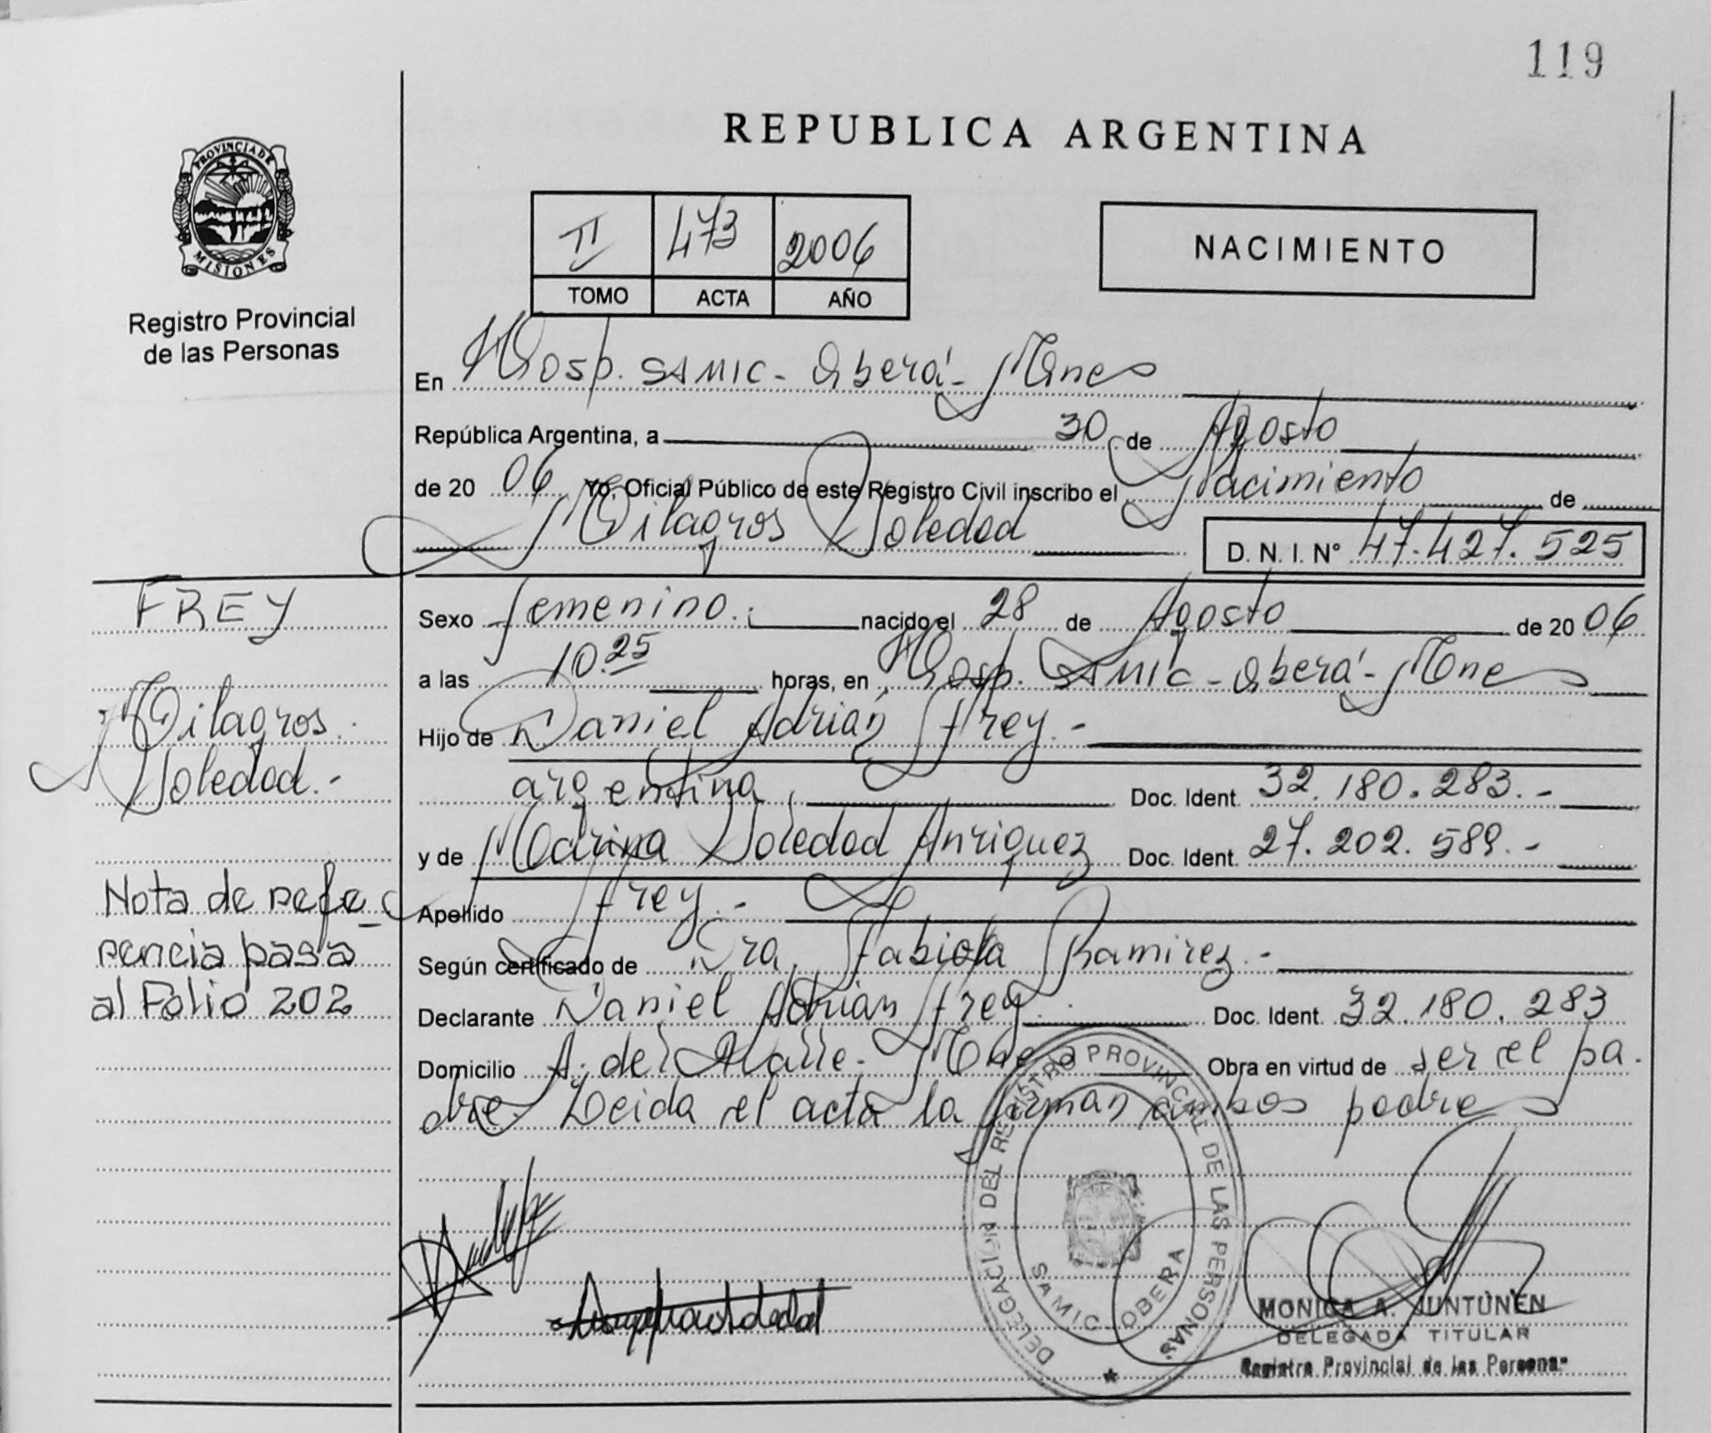 119
REPUBLICA ARGENTINA
PROVINCIA DE
MISIONES
Registro Provincial
de las Personas
II 473 2006
TOMO ACTA AÑO
NACIMIENTO
En Hosp. SAMIC - Oberá - Mnes
República Argentina, a 30 de Agosto
de 20 06 Yo, Oficial Público de este Registro Civil inscribo el Nacimiento de
Milagros Soledad
D. N. I. N° 47.427.525
FREY
Milagros
Soledad.-
Nota de refe_
rencia pasa
al Folio 202
Sexo femenino. nacido el 28 de Agosto de 20 06
a las 10.25 horas, en Hosp. SAMIC - Oberá - Mnes
Hijo de Daniel Adrián Frey.-
argentina, Doc. Ident. 32.180.283.-
y de Marina Soledad Anriquez Doc. Ident. 27.202.589.-
Apellido Frey.-
Según certificado de Dra. Fabiola Ramirez.-
Declarante Daniel Adrián Frey Doc. Ident. 32.180.283
Domicilio A. del Valle - Mnes Obra en virtud de ser el pa.
dre. Leida el acta la firman ambos padres
DELEGACION DEL REGISTRO PROVINCIAL DE LAS PERSONAS
SAMIC OBERA
MONICA A. JUNTUNEN
DELEGADA TITULAR
Registro Provincial de las Personas